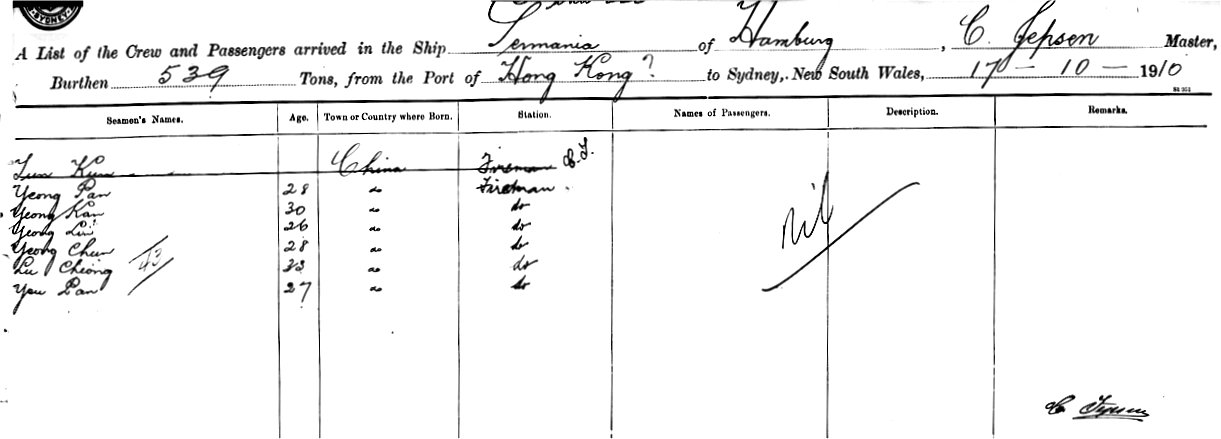 SYDNEY
A List of the Crew and Passengers arrived in the Ship Germania of Hamburg, C. Jepsen Master,
Burthen 539 Tons, from the Port of Hong Kong? to Sydney, New South Wales, 17 - 10 - 1910
Seamen's Names. Age. Town or Country where Born. Station. Names of Passengers. Description. Remarks.
Kun China Fireman
Yeong Pan 28 do Fireman
Yeong Kan 30 do do
Yeong 26 do do
Yeong Chun 28 do do
Lu Cheong 33 do do
You Pan 27 do do
43
nil
C Jepsen